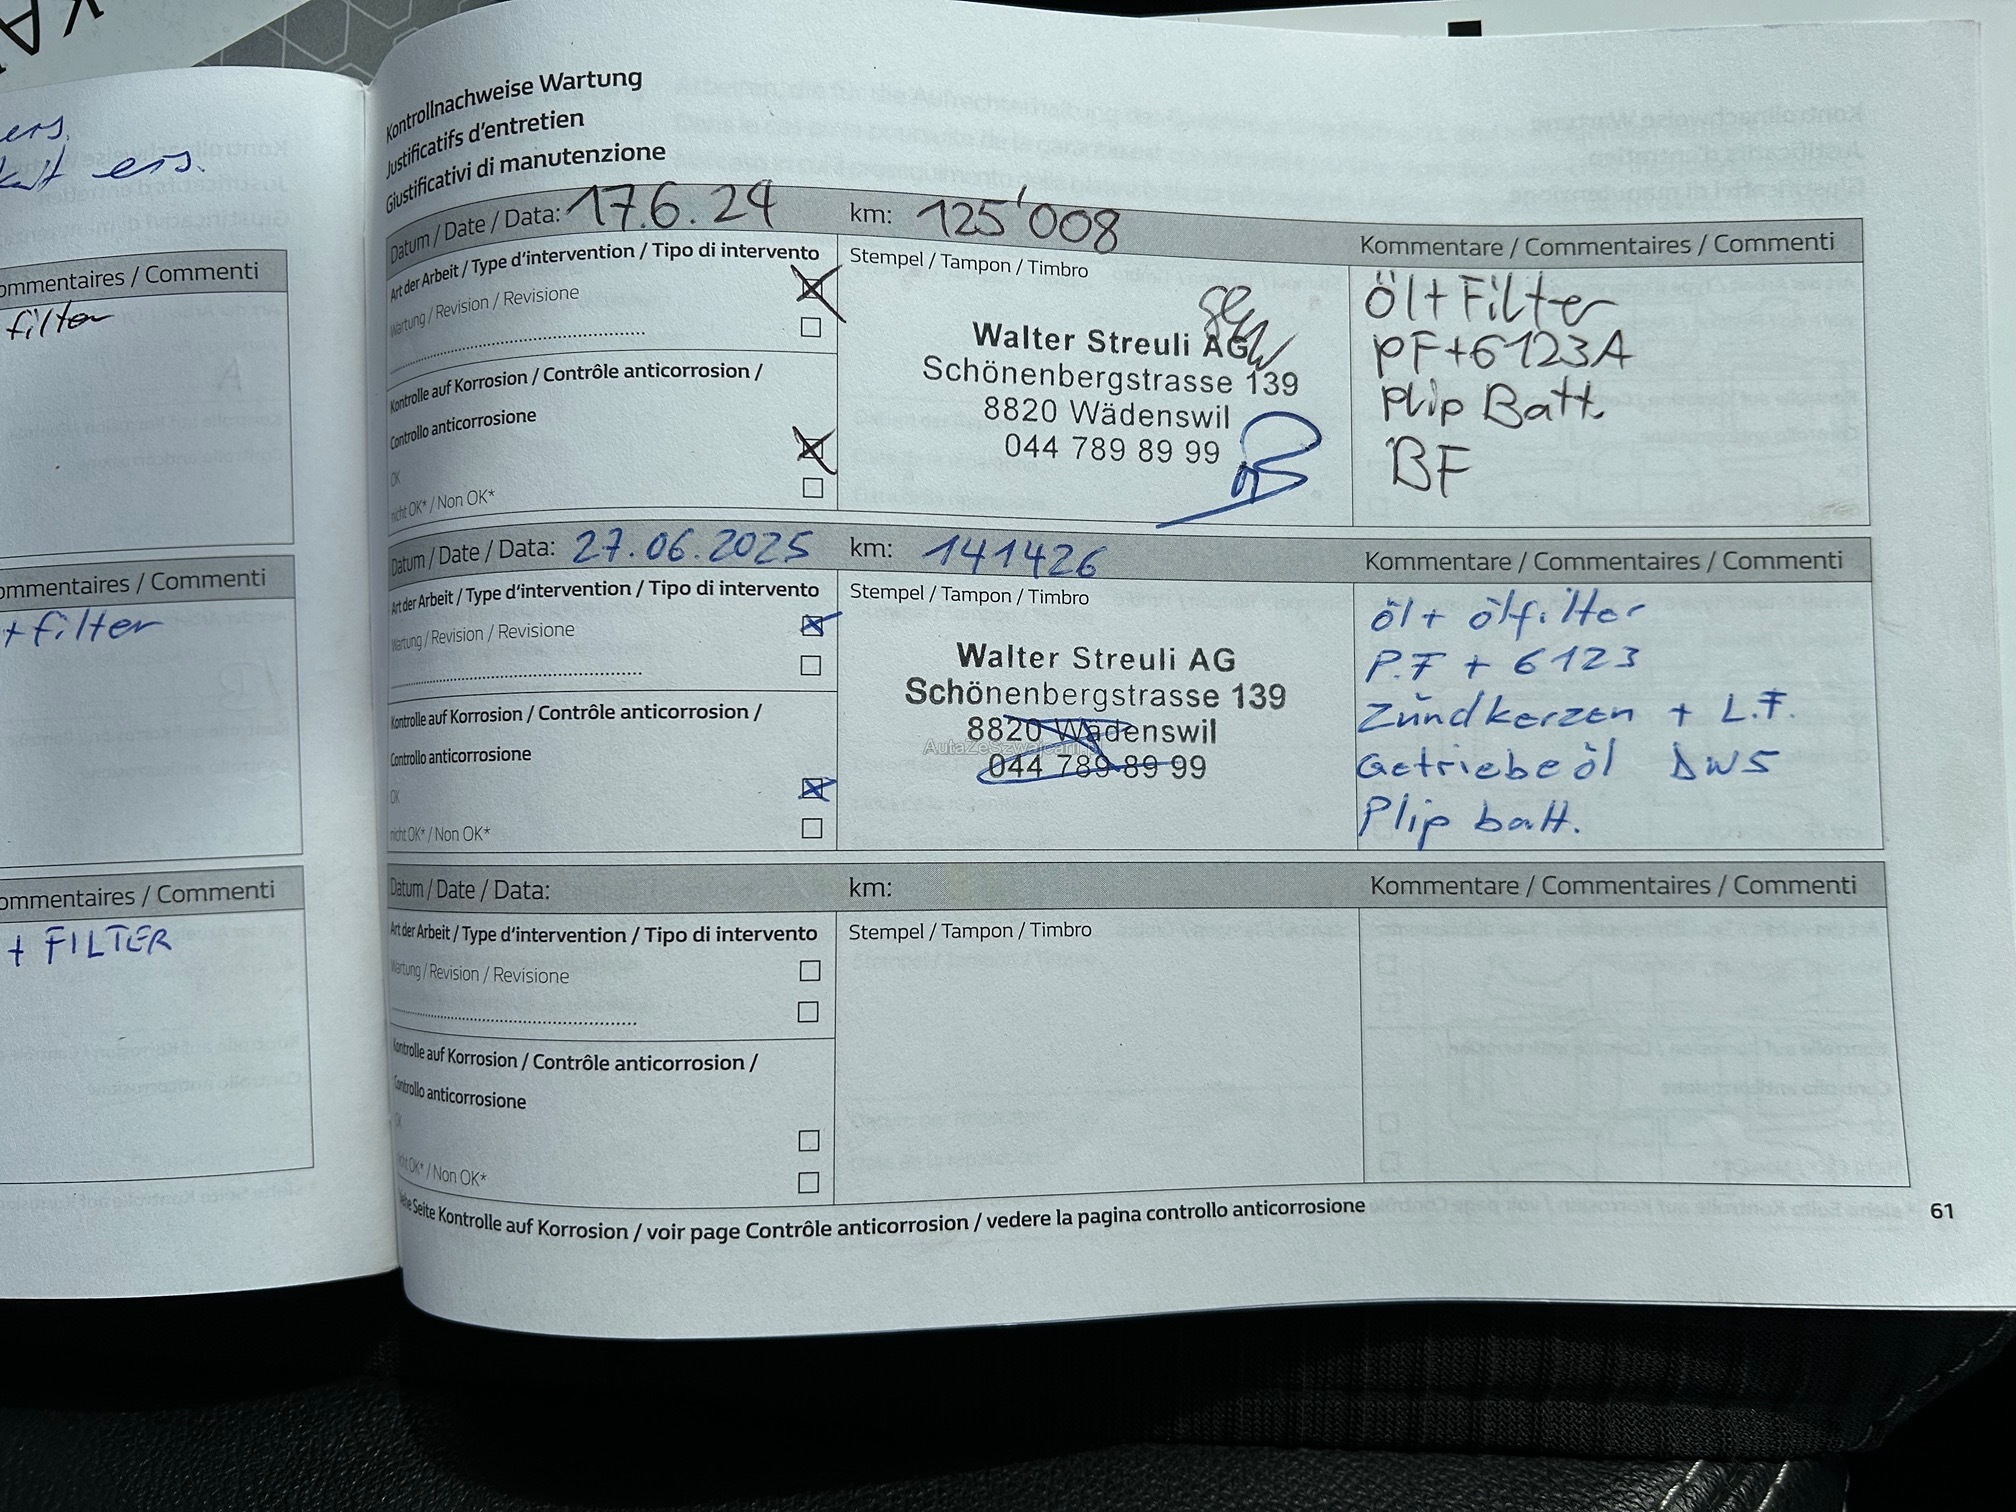 ers.
ers.
Commentaires / Commenti
filter
Commentaires / Commenti
+ filter
Commentaires / Commenti
+ FILTER
Kontrollnachweise Wartung
Justificatifs d'entretien
Giustificativi di manutenzione
Datum / Date / Data: 17.6.24 km: 125'008 Kommentare / Commentaires / Commenti
Art der Arbeit / Type d'intervention / Tipo di intervento
Wartung / Revision / Revisione
Kontrolle auf Korrosion / Contrôle anticorrosion /
Controllo anticorrosione
OK
nicht OK* / Non OK*
Stempel / Tampon / Timbro
Walter Streuli AG
Schönenbergstrasse 139
8820 Wädenswil
044 789 89 99
Öl + Filter
PF + 6123A
Plip Batt.
BF
Datum / Date / Data: 27.06.2025 km: 141426 Kommentare / Commentaires / Commenti
Art der Arbeit / Type d'intervention / Tipo di intervento
Wartung / Revision / Revisione
Kontrolle auf Korrosion / Contrôle anticorrosion /
Controllo anticorrosione
OK
nicht OK* / Non OK*
Stempel / Tampon / Timbro
Walter Streuli AG
Schönenbergstrasse 139
8820 Wädenswil
044 789 89 99
öl + ölfilter
P.F + 6123
Zündkerzen + L.F.
Getriebeöl DW5
Plip batt.
Datum / Date / Data: km: Kommentare / Commentaires / Commenti
Art der Arbeit / Type d'intervention / Tipo di intervento
Wartung / Revision / Revisione
Kontrolle auf Korrosion / Contrôle anticorrosion /
Controllo anticorrosione
OK
nicht OK* / Non OK*
Stempel / Tampon / Timbro
siehe Seite Kontrolle auf Korrosion / voir page Contrôle anticorrosion / vedere la pagina controllo anticorrosione
61